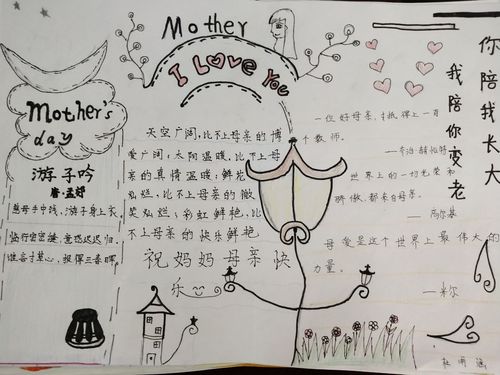 Mother
I Love You
Mother's
day
游子吟
唐·孟郊
慈母手中线,游子身上衣
临行密密缝,意恐迟迟归.
谁言寸草心,报得三春晖
天空广阔,比不上母亲的博
爱广阔;太阳温暖,比不上母
亲的真情温暖;鲜花
灿烂,比不上母亲的微
笑灿烂;彩虹鲜艳,比
不上母亲的快乐鲜艳
祝妈妈母亲快
乐
一位好母亲,抵得上一百
个教师。
—乔治·赫柏特
世界上的一切光荣和
骄傲,都来自母亲。
—高尔基
母爱是这个世界上最伟大的
力量。
—米尔
你陪我长大
我陪你变老